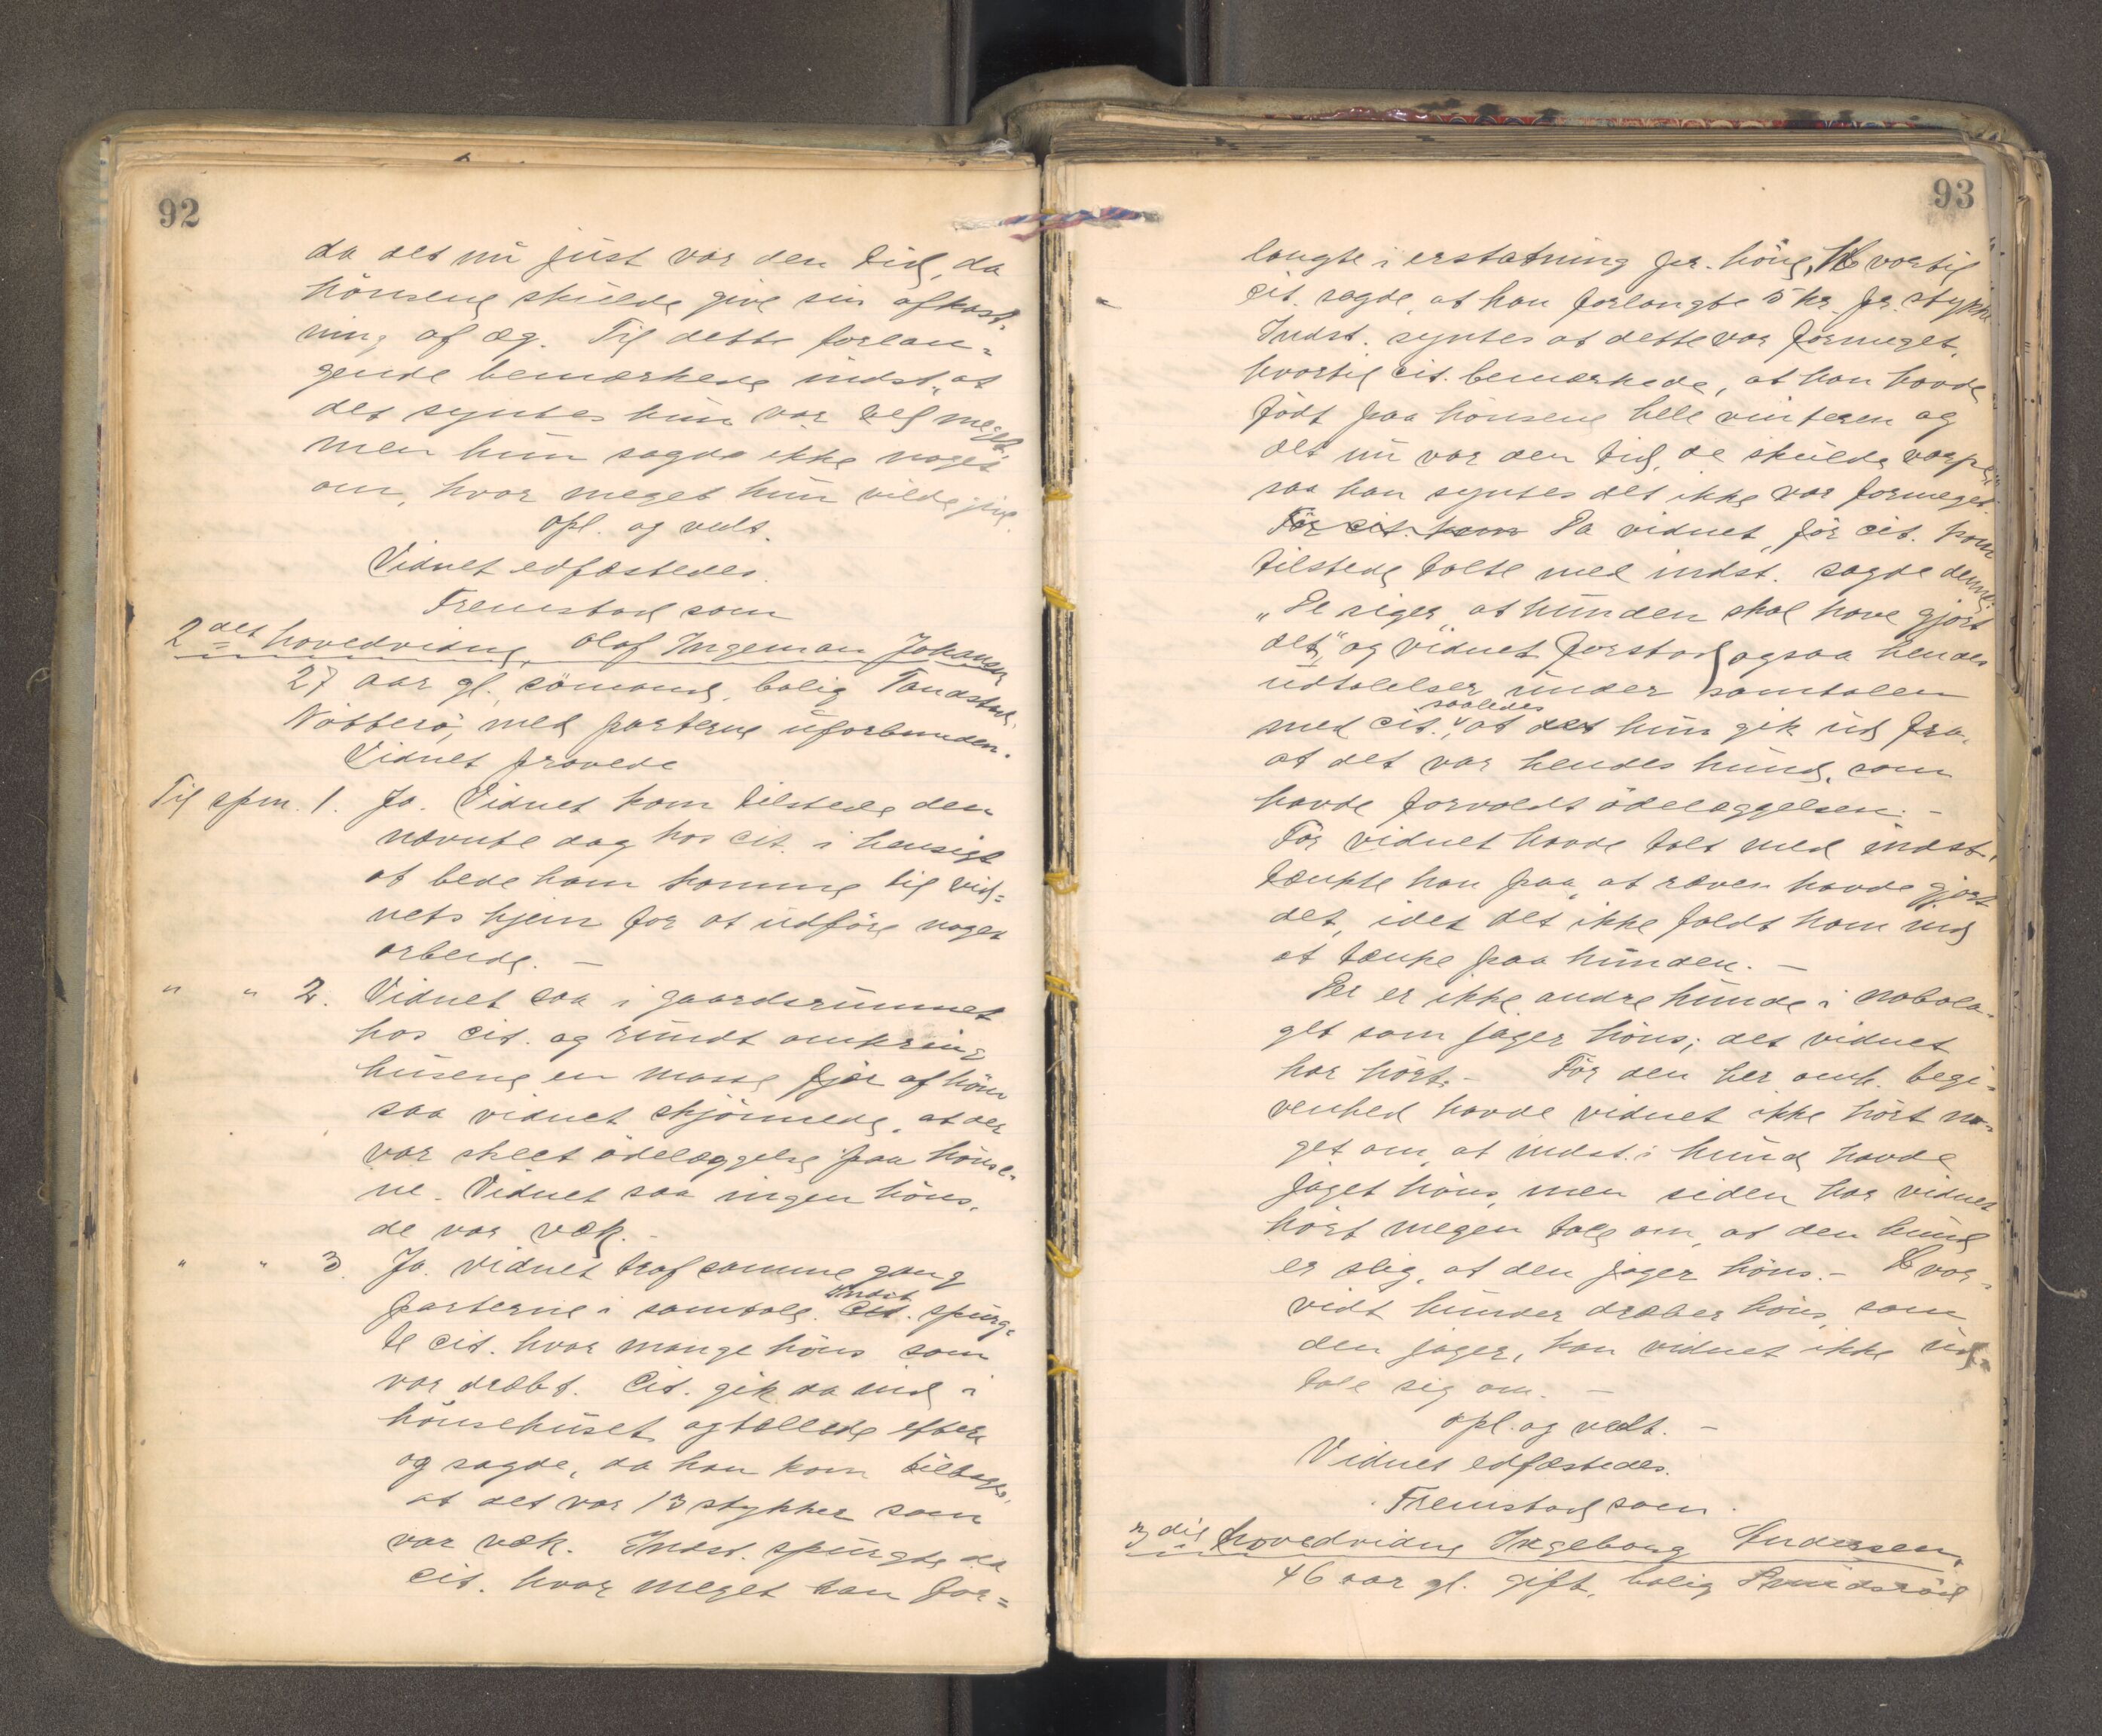 92
da det nu just var den tid, da
hönsene skulde give sin afkast-
ning af æg. Til dette forlan=
gende bemærkede indst., at
det syntes hun var vel meget,
men hun sagde ikke noget
om, hvor meget hun vilde give.
Opl. og vedt.
Vidnet edfæstedes.
Fremstod som
2det hovedvidne, Olaf Ingeman Johansen
27 aar gl. sömand, bolig
Nötterö, med parterne uforbunden.
Vidnet provede
Til spm. 1. Ja. Vidnet kom tilstede den
nævnte dag hos cit. i hensigt
at bede ham komme til vid=
nets hjem for at udföre noget
arbeide. —
" " 2. Vidnet saa i gaardsrummet
hos cit. og rundt omkring
husene en masse fjær af höns
saa vidnet skjönnede, at der
var skeet ödelæggelse paa hönse-
ne. Vidnet saa ingen höns,
de var væk. —
" " 3. Ja. Vidnet traf samme gang
parterne i samtale. Cit. Indst. spurg=
te cit. hvor mange höns som
var dræbt. Cit. gik da ind i
hönsehuset og tællede efter
og sagde, da han kom tilbage,
at det var 13 stykker som
var væk. Indst. spurgte da
cit. hvor meget han for=
93
langte i erstatning pr. höne, Hvortil
cit. sagde, at han forlangte 5 kr. pr. stykke
Indst. syntes at dette var formeget,
hvortil cit. bemærkede, at han havde
födt paa hönsene hele vinteren og
det nu var den tid, de skulde værpe,
saa han syntes det ikke var formeget.
För cit. kom Da vidnet, för cit. kom
tilstede talte med indst. sagde denne:
"De siger, at hunden skal have gjort
det", og vidnet forstod ogsaa hendes
udtalelser under samtalen
med cit. saaledes, at det hun gik ud fra,
at det var hendes hund, som
havde forvoldt ödelæggelsen. —
För vidnet havde talt med indst.
tænkte han paa, at ræven havde gjort
det, idet det ikke faldt ham ind
at tænke paa hunden. —
Der er ikke andre hunde i nabola-
get som jager höns; det vidnet
har hört. — För den her omh. begi-
venhed havde vidnet ikke hört no-
get om, at indst.s hund havde
jaget höns, men siden har vidnet
hört megen tale om, at den hund
er slig, at den jager höns. — Hvor-
vidt hunden dræber höns, som
den jager, kan vidnet ikke ud-
tale sig om. —
Opl. og vedt. —
Vidnet edfæstedes.
Fremstod som
3die hovedvidne Ingeborg Andersen,
46 aar gl. gift, bolig